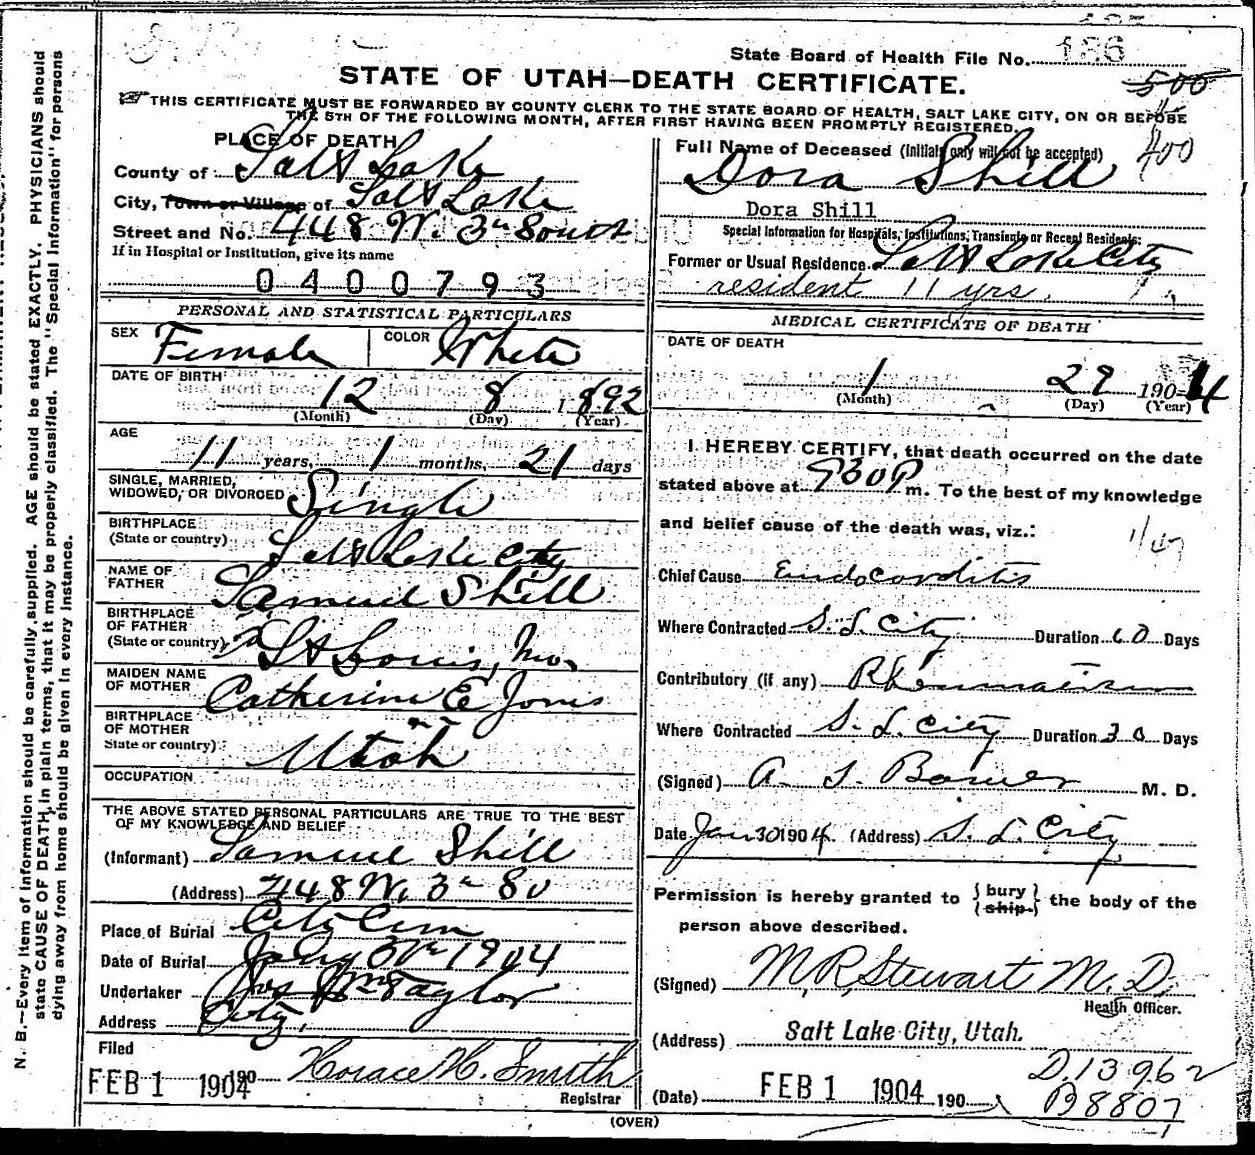 State Board of Health File No. 186
STATE OF UTAH—DEATH CERTIFICATE.
500
THIS CERTIFICATE MUST BE FORWARDED BY COUNTY CLERK TO THE STATE BOARD OF HEALTH, SALT LAKE CITY, ON OR BEFORE
THE 5TH OF THE FOLLOWING MONTH, AFTER FIRST HAVING BEEN PROMPTLY REGISTERED.
400
PLACE OF DEATH
County of Salt Lake
City, Town or Village of Salt Lake
Street and No. 448 W. 3rd South
If in Hospital or Institution, give its name
0400793
Full Name of Deceased (Initials only will not be accepted)
Dora Shill
Dora Shill
Special Information for Hospitals, Institutions, Transients or Recent Residents:
Former or Usual Residence Salt Lake City
resident 11 yrs.
PERSONAL AND STATISTICAL PARTICULARS
SEX Female COLOR White
DATE OF BIRTH
12 8 1892
(Month) (Day) (Year)
AGE
11 years, 1 months, 21 days
SINGLE, MARRIED,
WIDOWED, OR DIVORCED Single
BIRTHPLACE
(State or country) Salt Lake City
NAME OF
FATHER Samuel Shill
BIRTHPLACE
OF FATHER
(State or country) St Louis, Mo.
MAIDEN NAME
OF MOTHER Catherine E Jones
BIRTHPLACE
OF MOTHER
State or country) Utah
OCCUPATION
THE ABOVE STATED PERSONAL PARTICULARS ARE TRUE TO THE BEST
OF MY KNOWLEDGE AND BELIEF
(Informant) Samuel Shill
(Address) 448 W. 3rd So
Place of Burial City Cem
Date of Burial 1904
Undertaker Taylor
Address City.
Filed
FEB 1 1904 190 Horace H. Smith
Registrar
MEDICAL CERTIFICATE OF DEATH
DATE OF DEATH
1 29 1904
(Month) (Day) (Year)
I HEREBY CERTIFY, that death occurred on the date
stated above at 930 P m. To the best of my knowledge
and belief cause of the death was, viz.:
Chief Cause Endocarditis
Where Contracted S. L. City Duration 60 Days
Contributory (if any) Rheumatism
Where Contracted S. L. City Duration 30 Days
(Signed) A. S. Bower M. D.
Date Jan 30 1904. (Address) S. L. City
Permission is hereby granted to { bury ship } the body of the
person above described.
(Signed) M. R. Stewart M. D.
Health Officer.
(Address) Salt Lake City, Utah.
D.13962
(Date) FEB 1 1904 190
B8807
(OVER)
N. B.—Every item of information should be carefully supplied. AGE should be stated EXACTLY. PHYSICIANS should
state CAUSE OF DEATH in plain terms, that it may be properly classified. The "Special Information" for persons
dying away from home should be given in every instance.